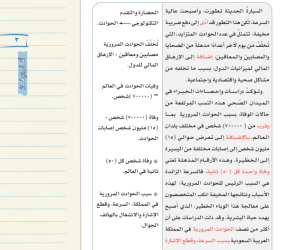 السيارةُ الحديثة تطورت، وأصبحت عالية
السرعة، لكن هذا التطور قد أدى إلى دفع ضريبة
مخيفة، تتمثل في عدد الحوادث المتزايد، التي
تخلف من يوم لآخر أعدادًا مذهلة من الضحايا
والمصابين والمعاقين، إضافة إلى الإرهاق
المالي لميزانيات الدول، بسبب ما تخلفه من
مشاكل صحية واقتصادية واجتماعية.
وتؤكد دراسات وإحصاءات الخبراء في
الميدان الصحي هذه النسب المرتفعة من
حالات الوفاة بسبب الحوادث المرورية بما
يقرب من (٧٠٠٠٠٠) شخص في مختلف بلدان
العالم، بالإضافة إلى تعرض حوالي (١٥)
مليون شخص إلى إصابات مختلفة من اليسيرة
إلى الخطيرة. وهذه الأرقام المذهلة تعني
وفاة واحدة كل (٥٠) ثانية، فالسرعة الزائدة
هي السبب الرئيس للحوادث المرورية؛ لهذه
الأسباب ونتائجها المخيفة انكب المتخصصون
على معالجة هذا الوباء الخطير، الذي أصبح
يهدد حياة البشرية، وقد دلت الدراسات على أن
أكثر من نصف الحوادث المرورية في المملكة
العربية السعودية بسبب السرعة، وقطع الإشارة
الحضارة والتقدم
التكنولوجي ← الحوادث.
تخلف الحوادث المرورية
مصابين ومعاقين - الإرهاق
المالي للدول.
وفيات الحوادث في العالم
(٧٠٠٠٠٠) شخص.
وفاة (٧٠٠٠٠٠) شخص -
(١٥) مليون شخص إصابات
الحوادث.
وفاة شخص كل (٥٠)
ثانية في العالم.
سبب الحوادث المرورية
في المملكة: السرعة، وقطع
الإشارة والانشغال بالهاتف
الجوال.
٣